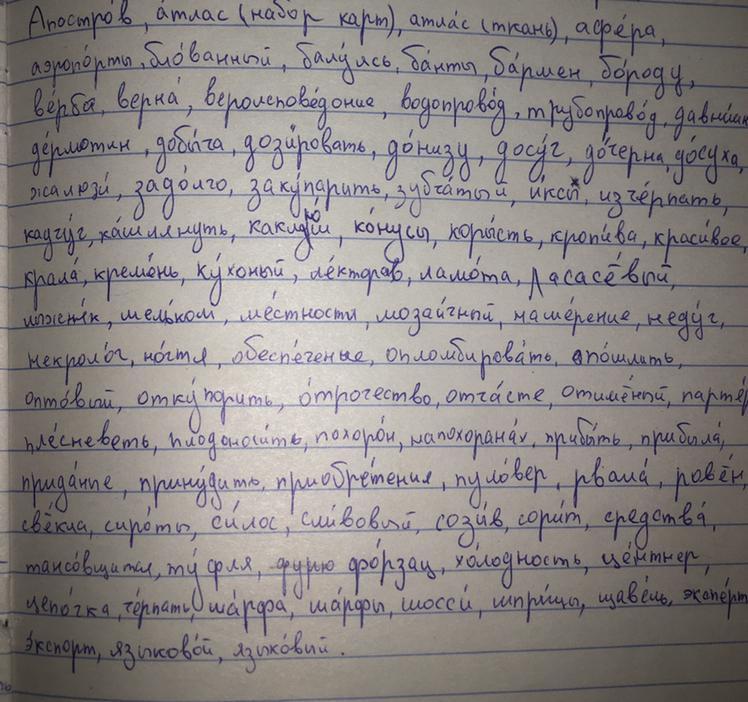 Апостро́в, а́тлас (набор карт), атла́с (ткань), афе́ра,
аэропо́рты, бло́ванный, балу́ясь, ба́нты, ба́рмен, бо́роду,
ве́рба, верна́, вероиспове́доние, водопрово́д, трубопрово́д,
де́рмотин, добы́ча, дози́ровать, до́низу, досу́г, до́черна, до́суха,
жалюзи́, задо́лго, заку́парить, зубча́тый, и́ксы, изче́рпать,
ка́шлянуть, ко́нусы, коры́сть, кропи́ва, краси́вое,
крала́, кремо́нь, ку́хоный, ле́кторав, ламо́та, ласасёвый,
лыжня́к, мельком, ме́стностя, мозаи́чный, наме́рение, неду́г,
некроло́г, но́гтя, обеспе́чение, опломбирова́ть, опо́шлить,
опто́вый, отку́порить, о́трочество, отча́сте, отимённый, парте́р
пле́сневеть, плодоноси́ть, похоро́н, напохорана́х, прибы́ть, прибыла́,
прида́нне, прину́дить, приобре́тения, пуло́вер, рвала́, рове́н,
свёкла, сиро́ты, си́лос, сли́вовый, сози́в, сори́т, средства́,
тансо́вщитая, ту́фля, фурью фо́рзац, хо́лодность, це́нтнер,
цепо́чка, че́рпать, ша́рфа, ша́рфы, шосси́, шпри́цы, щаве́ль, экспе́рт
э́кспорт, языково́й, языко́вий.